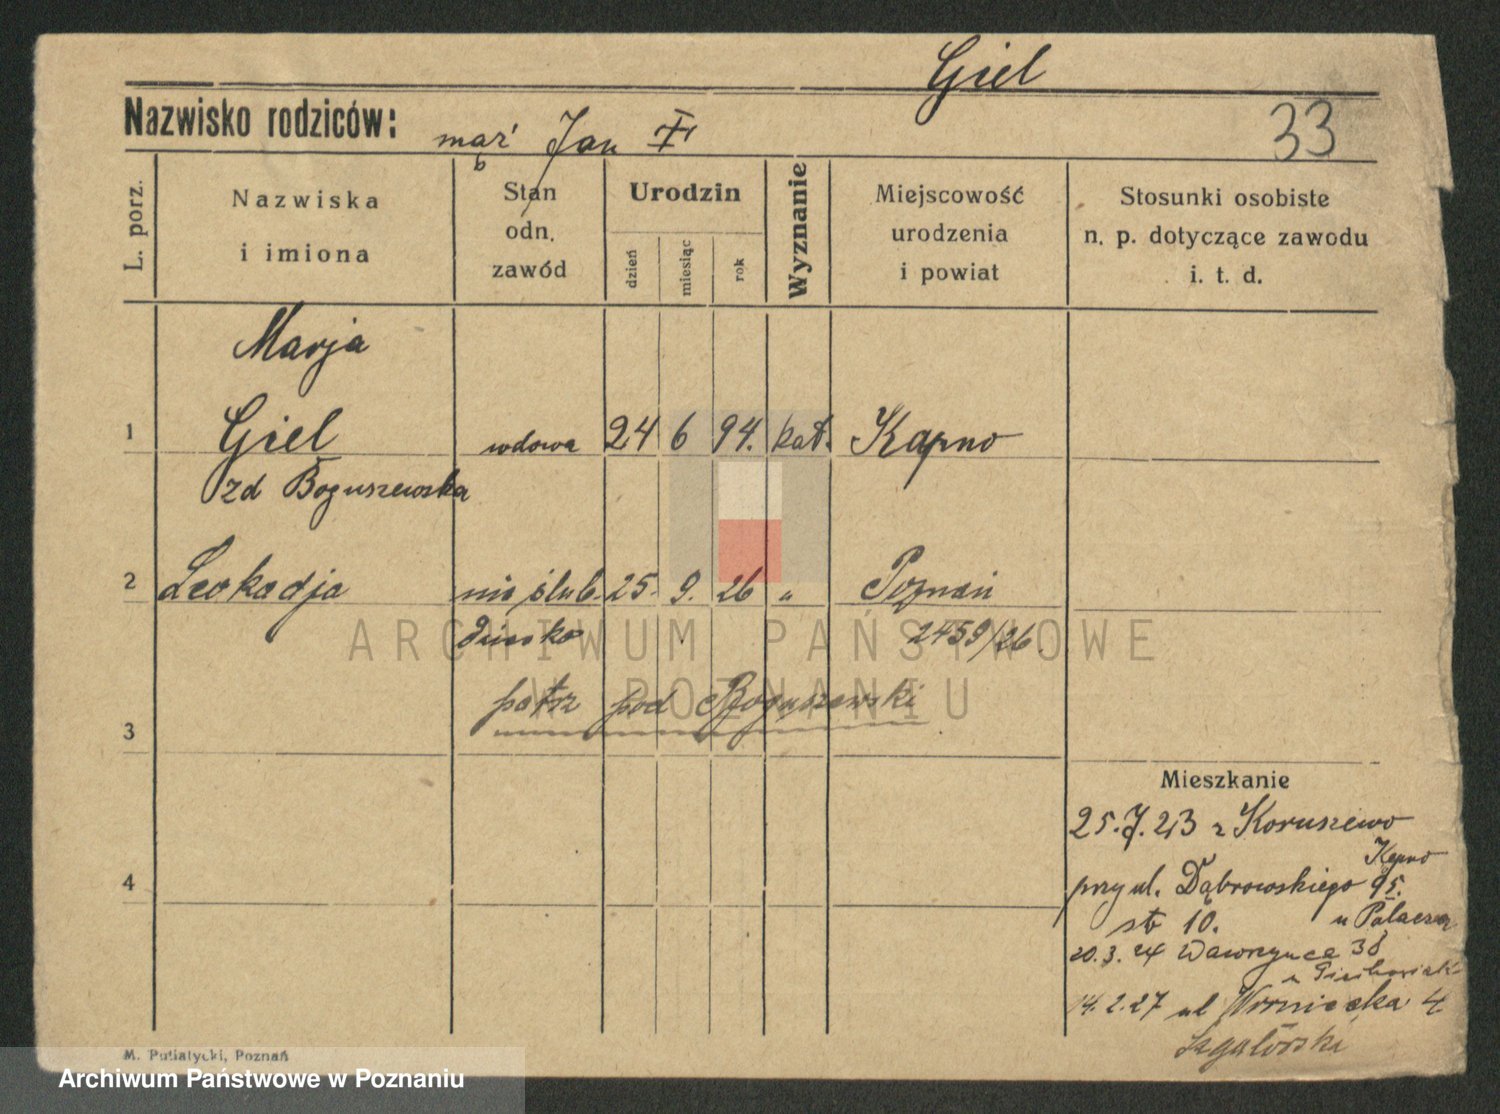 Giel
Nazwisko rodziców: mąż Jan
33
L. porz.
Nazwiska i imiona
Stan odn. zawód
Urodzin
dzień
miesiąc
rok
Wyznanie
Miejscowość urodzenia i powiat
Stosunki osobiste n. p. dotyczące zawodu i. t. d.
Marja
1 Giel wdowa 24 6 94. kat. Kąpno
zd Boguszewska
2 Leokadja nie ślub. 25. 9. 26 „ Poznań
dziecko 2459/26.
ARCHIWUM PAŃSTWOWE
W POZNANIU
patrz pod Boguszewski
3
Mieszkanie
25.7.23 z Koruszewo
Kępno
4
przy ul. Dąbrowskiego 95.
st 10. u Palacza
20.3.24 Wawrzyńca 38
14.2.27 ul 4
M. Putiatycki, Poznań
Archiwum Państwowe w Poznaniu